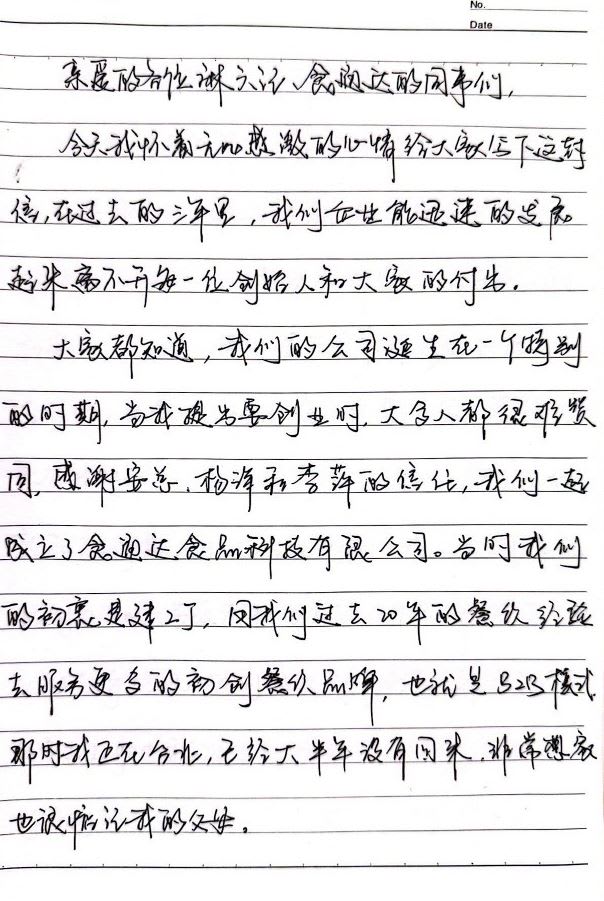 No.
Date
亲爱的各位谢立记、食通达的同事们,
今天我怀着无比感激的心情给大家写下这封
信,在过去的三年里,我们企业能迅速的发展
起来离不开每一位创始人和大家的付出。
大家都知道,我们的公司诞生在一个特别
的时期,当我提出要创业时,大多人都很难赞
同,感谢安总、杨洋和李萍的信任,我们一起
成立了食通达食品科技有限公司。当时我们
的初衷是建工厂,用我们过去20年的餐饮经验
去服务更多的初创餐饮品牌,也就是B2B模式
那时我还在台北,已经大半年没有回来,非常想家
也很惦记我的父母。